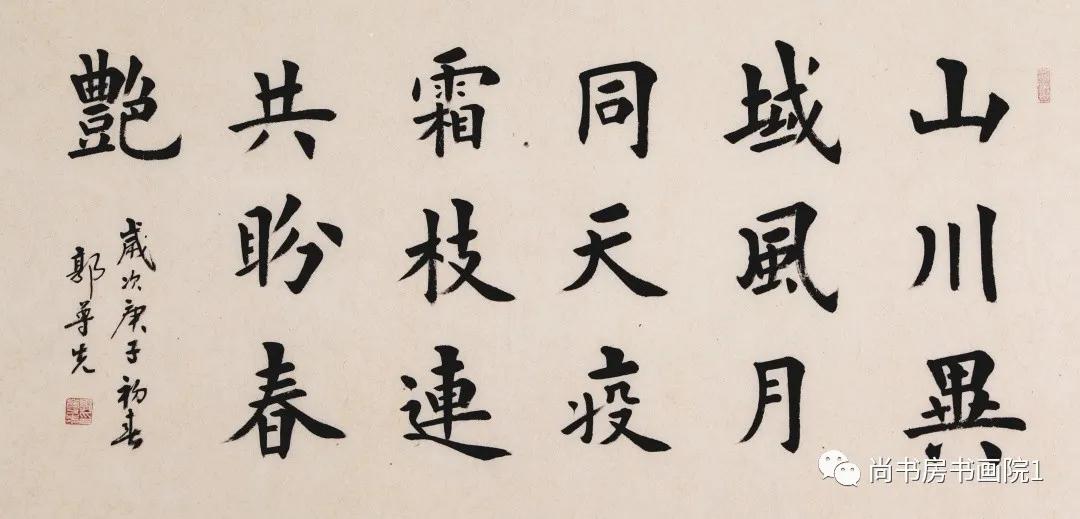 山川異
域風月
同天疫
霜枝連
共盼春
艷
歲次庚子初春
郭尊先
尚书房书画院1